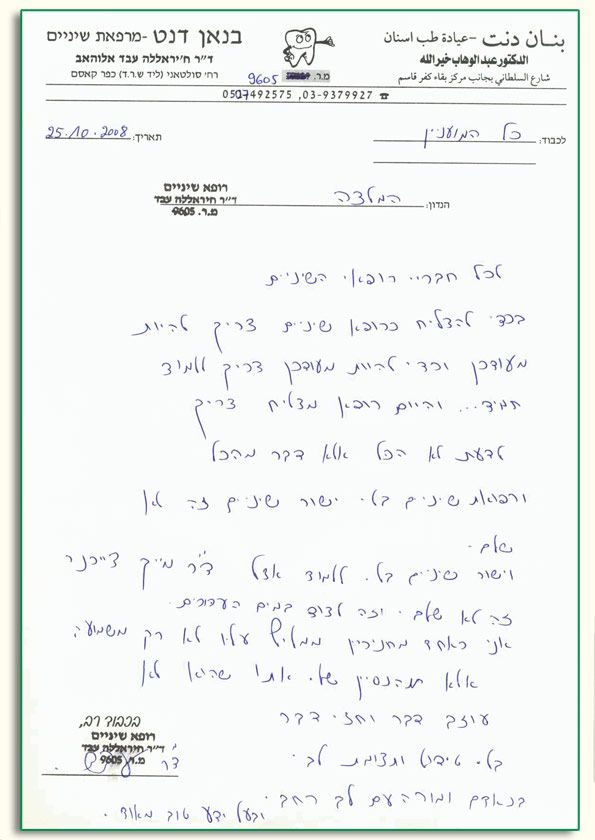 בנאן דנט -מרפאת שיניים
ד״ר ח׳יראללה עבד אלוהאב
רח׳ סולטאני (ליד ש.ר.ד) כפר קאסם
מ.ר. 9605
بنان دنت -عيادة طب اسنان
الدكتور عبد الوهاب خير الله
شارع السلطاني بجانب مركز بقاء كفر قاسم
☎ 03-9379927, 0507492575
לכבוד: כל המעונין
תאריך: 25.10.2008
הנדון: המלצה
רופא שיניים
ד״ר חיראללה עבד
מ.ר. 9605
לכל חבריי רופאי השיניים
בכדי להצליח כרופא שיניים צריך להיות
מעודכן וכדי להיות מעודכן צריך ללמוד
תמיד... והיום רופא מצליח צריך
לדעת לא הכל אלא דבר מהכל
ורפואת שיניים בלי ישור שיניים זה לא
שלם.
וישור שיניים בלי ללמוד אצל ד״ר מייק
זה לא שלם. וזה לצוד במים העכורים.
אני כאחד ממליץ עליו לא רק משמועה
אלא מהנסיון שלי אתו שהוא לא
עוזב דבר וחצי דבר
בלי טיפול ותשומת לב.
בנאדם ומורה עם לב רחב.
ובעל ידע טוב מאוד.
בכבוד רב,
רופא שיניים
ד״ר חיראללה עבד
מ.ר. 9605
ד״ר